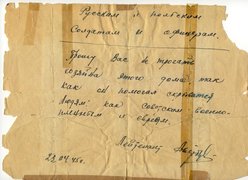 Русским и польским
Солдатам и офицерам.
Прошу Вас не трогать
хозяйна этого дома, так
как он помогал скрываться
людям, как советским военно-
пленным и евреям.
Лейтенант
23.04.45г.